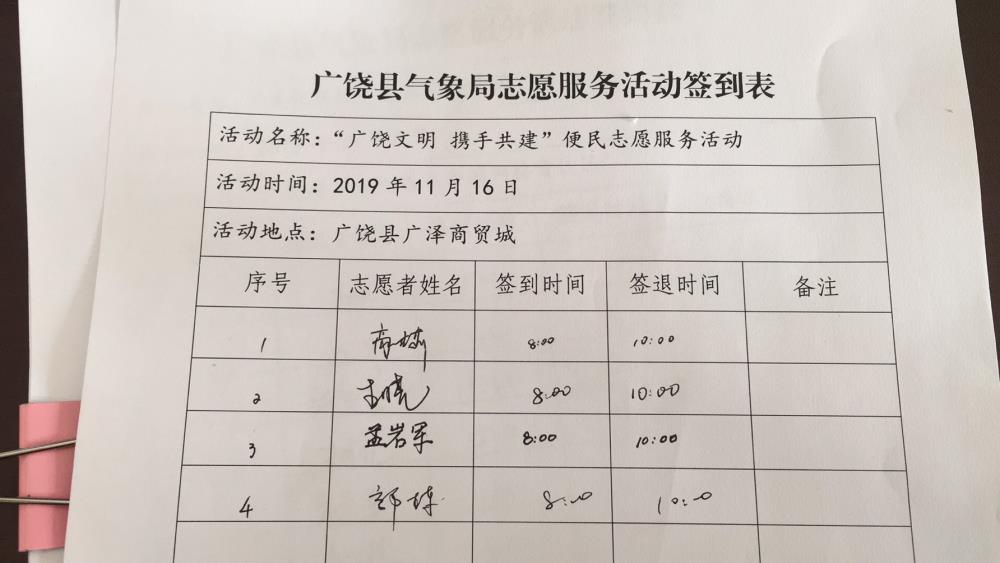 广饶县气象局志愿服务活动签到表
活动名称：“广饶文明 携手共建”便民志愿服务活动
活动时间：2019 年 11 月 16 日
活动地点：广饶县广泽商贸城
序号 志愿者姓名 签到时间 签退时间 备注
1 8:00 10:00
2 8:00 10:00
3 孟岩军 8:00 10:00
4 8:00 10:00